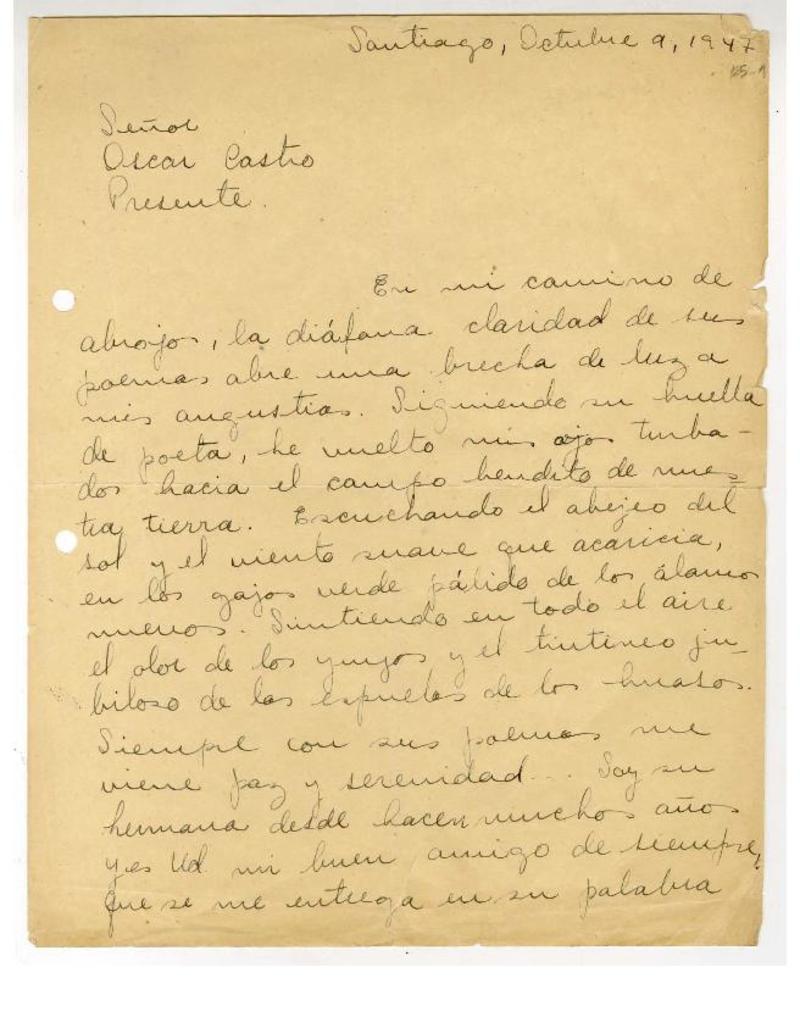 Santiago, Octubre 9, 1947
Señor
Oscar Castro
Presente.
En mi camino de
abrojos, la diáfana claridad de sus
poemas abre una brecha de luz a
mis angustias. Siguiendo su huella
de poeta, he vuelto mis ojos turba-
dos hacia el campo bendito de nues-
tra tierra. Escuchando el abejeo del
sol y el viento suave que acaricia,
en los gajos verde pálido de los álamos
nuevos. Sintiendo en todo el aire
el olor de los yuyos y el tintineo ju-
biloso de las espuelas de los huasos.
Siempre con sus poemas me
viene paz y serenidad... Soy su
hermana desde hacen muchos años
y es Ud. mi buen amigo de siempre,
que se me entrega en su palabra